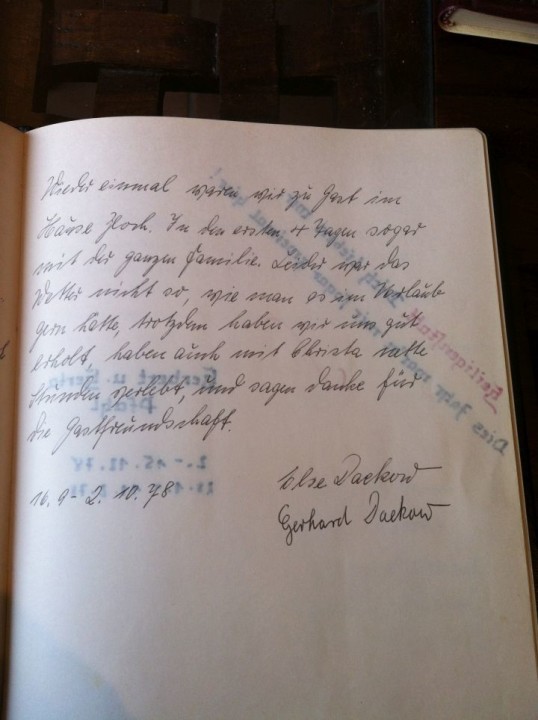 Wieder einmal waren wir zu Gast im
Hause Hoch. In den ersten 4 Tagen sogar
mit der ganzen Familie. Leider war das
Wetter nicht so, wie man es im Verlaub
gern hatte, trotzdem haben wir uns gut
erholt, haben auch mit Christa nette
Stunden verlebt, und sagen danke für
die Gastfreundschaft.
16.9 - 2.10.78
Else Dackow
Gerhard Dackow